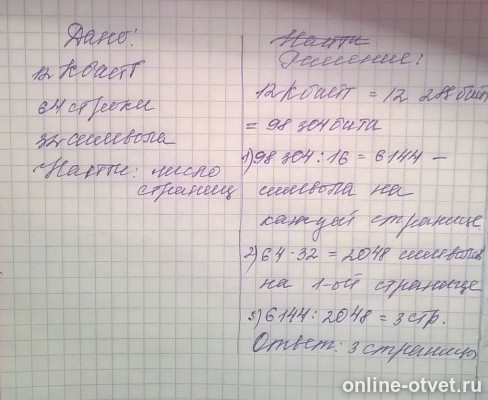 Дано:
12 Кбайт
64 строки
32 символа
Найти: число
страниц
Найти
Решение:
12 Кбайт = 12 288 байт
= 98 304 бита
1) 98 304 : 16 = 6144 –
символа на
каждой странице
2) 64 · 32 = 2048 символов
на 1-ой странице
3) 6144 : 2048 = 3 стр.
Ответ: 3 страницы
online-otvet.ru